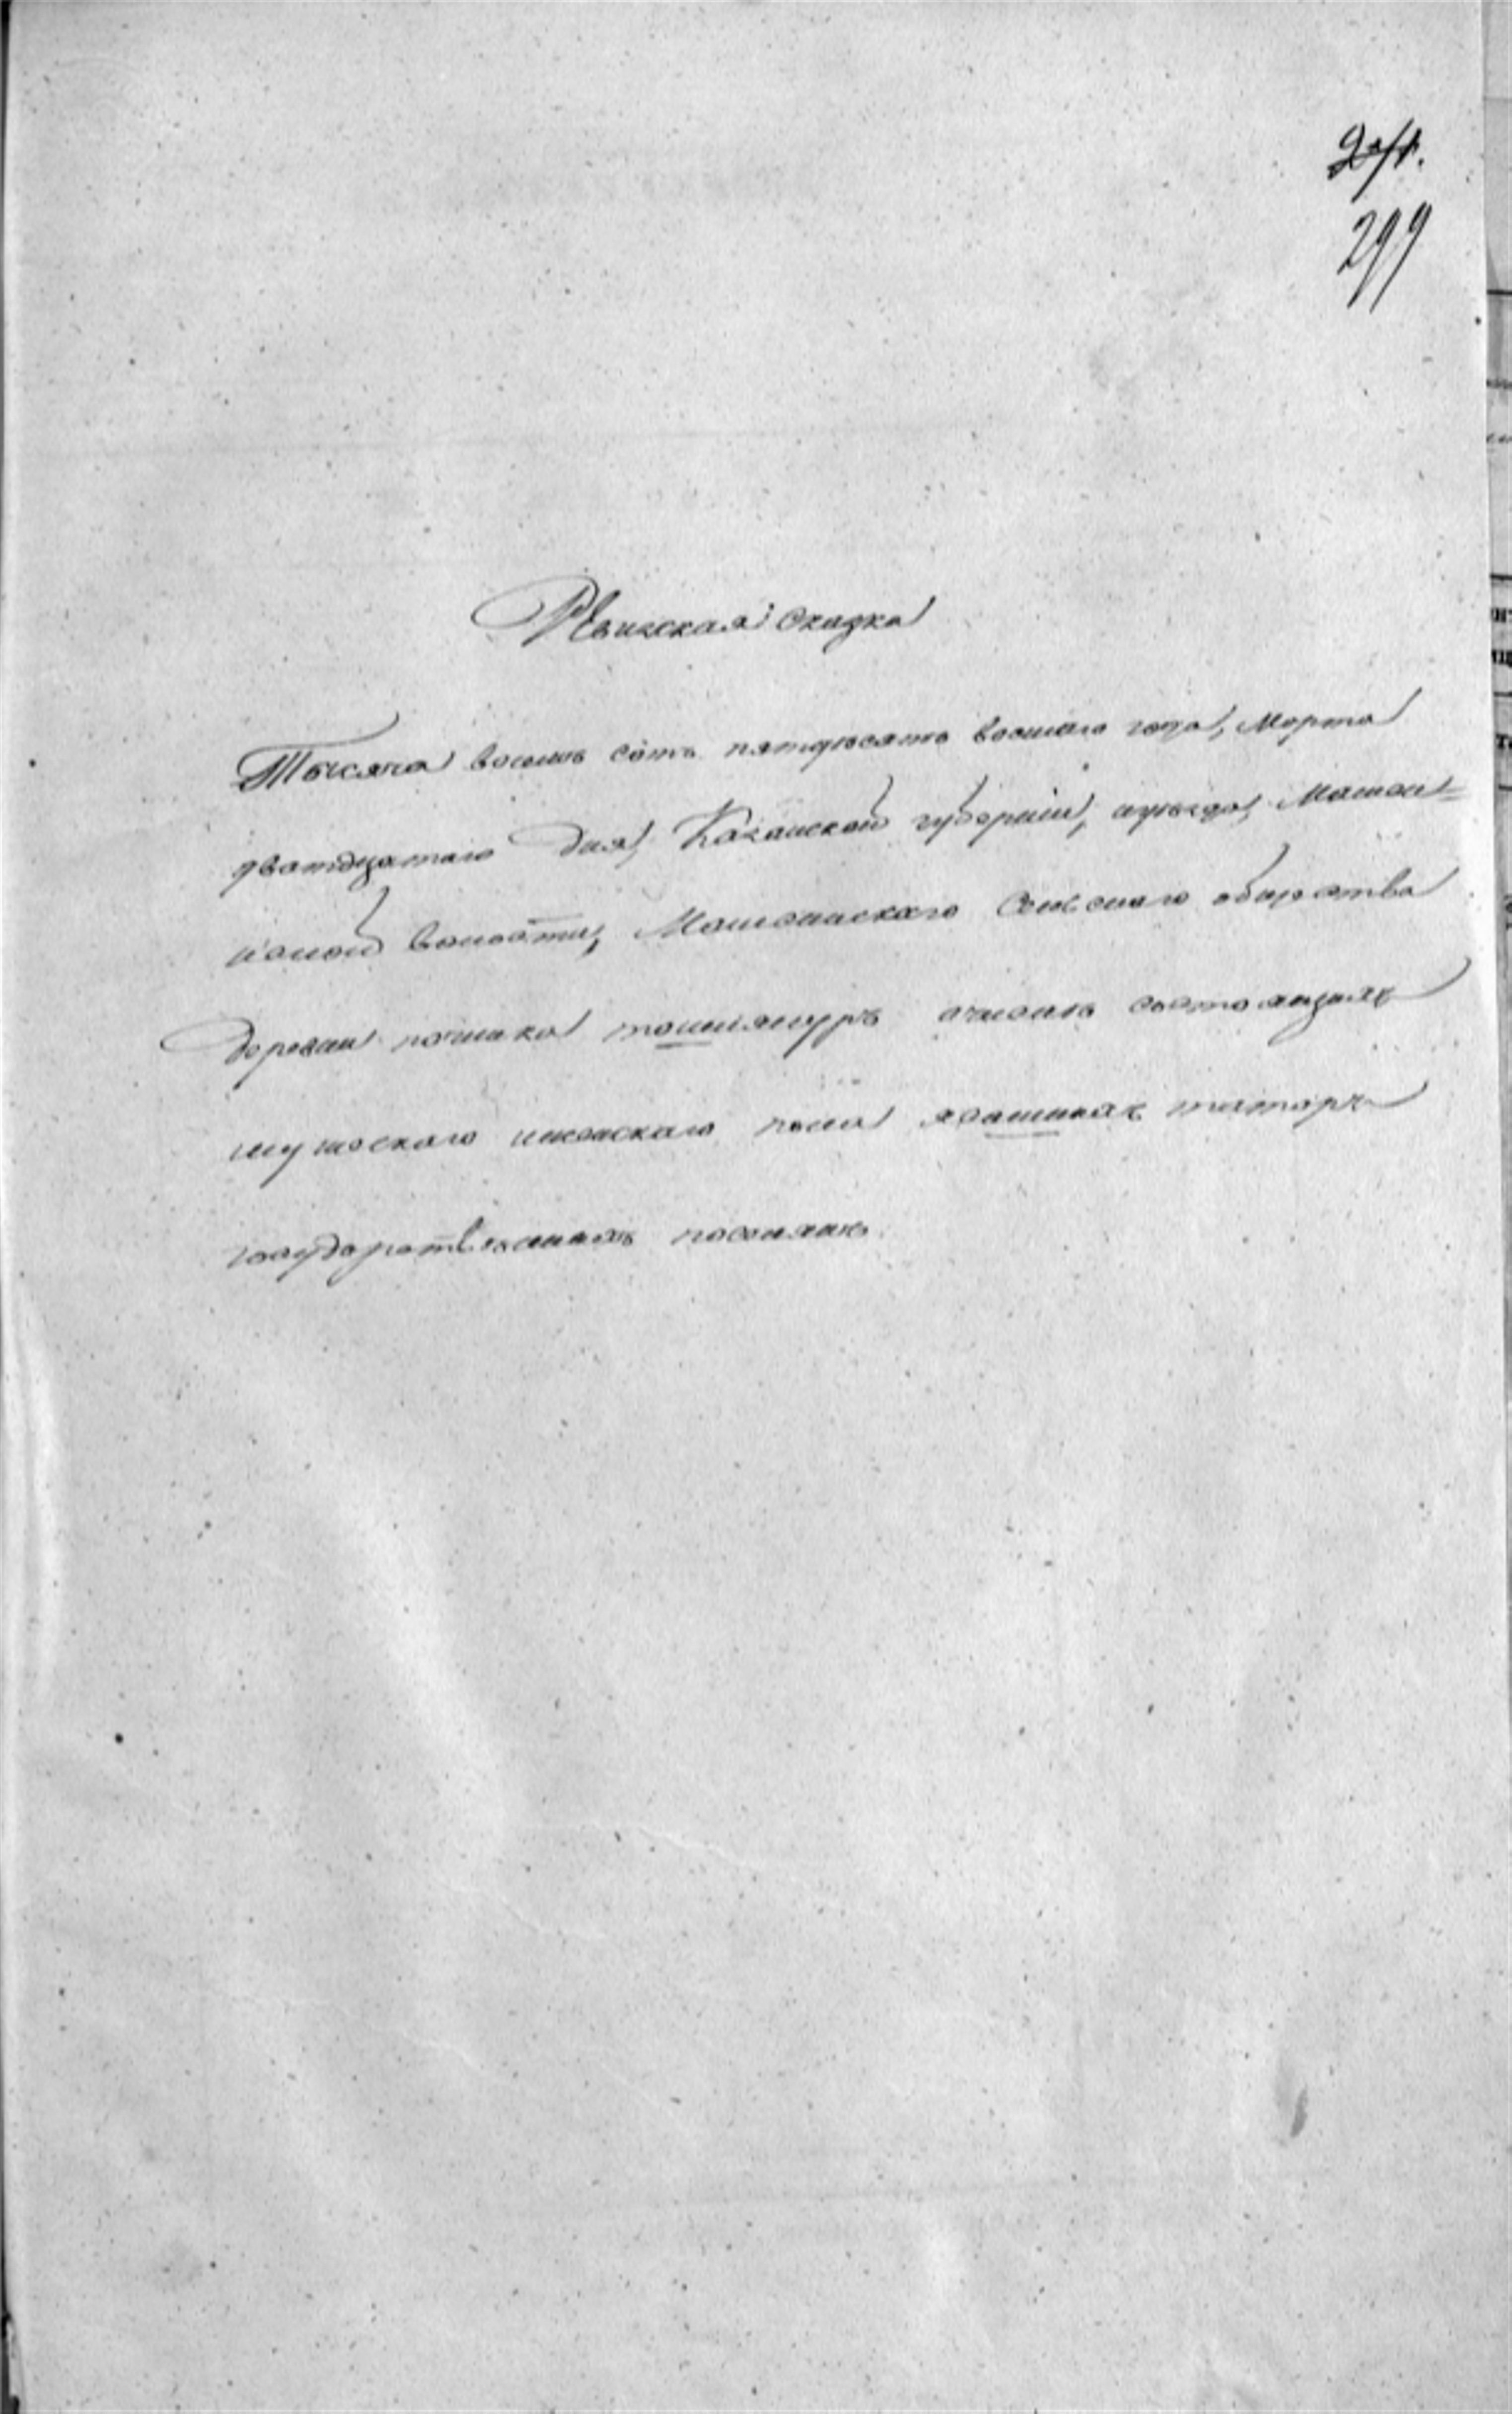 299
Ревизская сказка
Тысяча восемь сотъ пятдесятъ восмаго года, Марта
дватдцатаго дня, Казанской губерніи, иуѣзда,
волости, сельскаго общества
Деревни починка очислѣ состоящихъ
мужескаго иженскаго пола ясашныхъ татаръ
государственныхъ поселянъ.